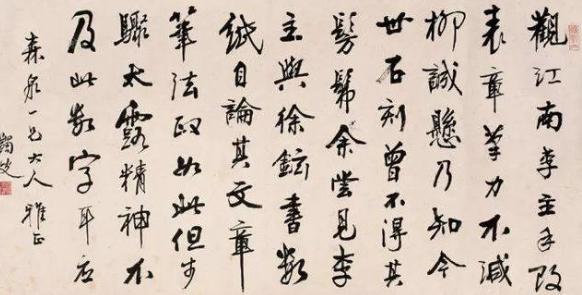 觀江南李主手改
表章筆力不減
柳誠懸乃知今
世石刻曾不得其
髣髴余嘗見李
主與徐鉉書數
紙自論其文章
筆法政如此但步
驟太露精神不
及此數字耳應
森泉一兄大人雅正
蝯叟